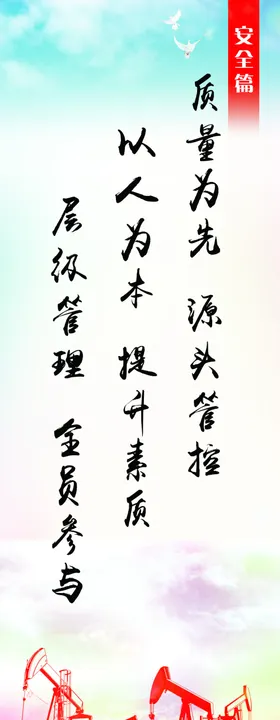 安全篇
质量为先 源头管控
以人为本 提升素质
层级管理 全员参与